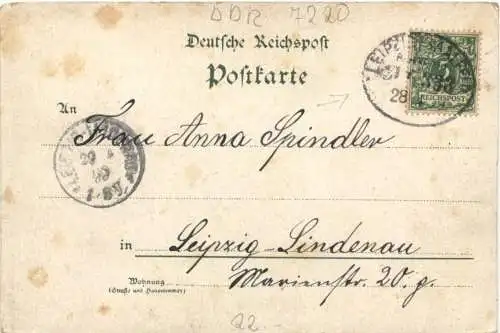 DDR 7220
Deutsche Reichspost
Postkarte
REICHSPOST
28
An
Frau Anna Spindler
29
in Leipzig-Lindenau
Wohnung
(Straße und Hausnummer)
Marienstr. 20. g.
22